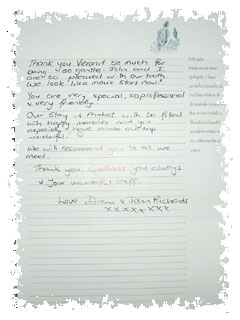 Thank you Veranit so much for
being so gentle. John and I
are so pleased with our teeth
We look like movie stars now!
You are very special, so professional
& very friendly!
Our Stay in Phuket will be filled
with happy memories and you
especially have made our trip
wonderful.
We will recommend you to all we
meet.
Thank you, you always
& Your wonderful staff.
Love & John Richards
xxxxxxxx